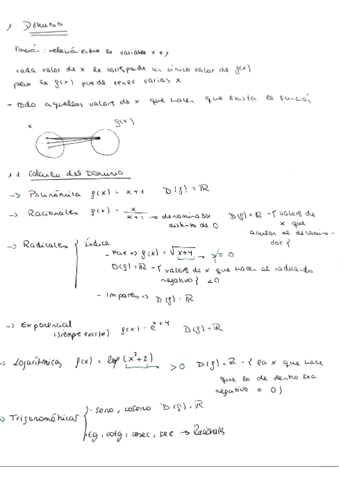 1 Dominio
Función: relación entre la variable x e y
cada valor de x le corresponde un único valor de f(x)
pero la f(x) puede tener varias x
- todo aquellos valores de x que hacen que exista la función
x f(x)
1.1 Cálculo del Dominio
-> Polinómica f(x) = x+1 D(f) = ℝ
-> Racionales f(x) = x/(x+1) -> denominador distinto de 0 D(f) = ℝ - { valores de x que anulan el denominador }
-> Radicales { índice
- Par => f(x) = √(x+4) -> ≥ 0
D(f) = ℝ - { valores de x que hacen el radicando negativo } < 0
- impares => D(f) = ℝ
-> Exponencial (siempre existe) f(x) = e^(x+4) D(f) = ℝ
-> Logarítmica f(x) = log (x²+2) > 0 D(f) = ℝ - { la x que hace que lo de dentro sea negativo o 0 }
-> Trigonométricas { - seno, coseno D(f) = ℝ
- tg, cotg, cosec, sec -> Racionales